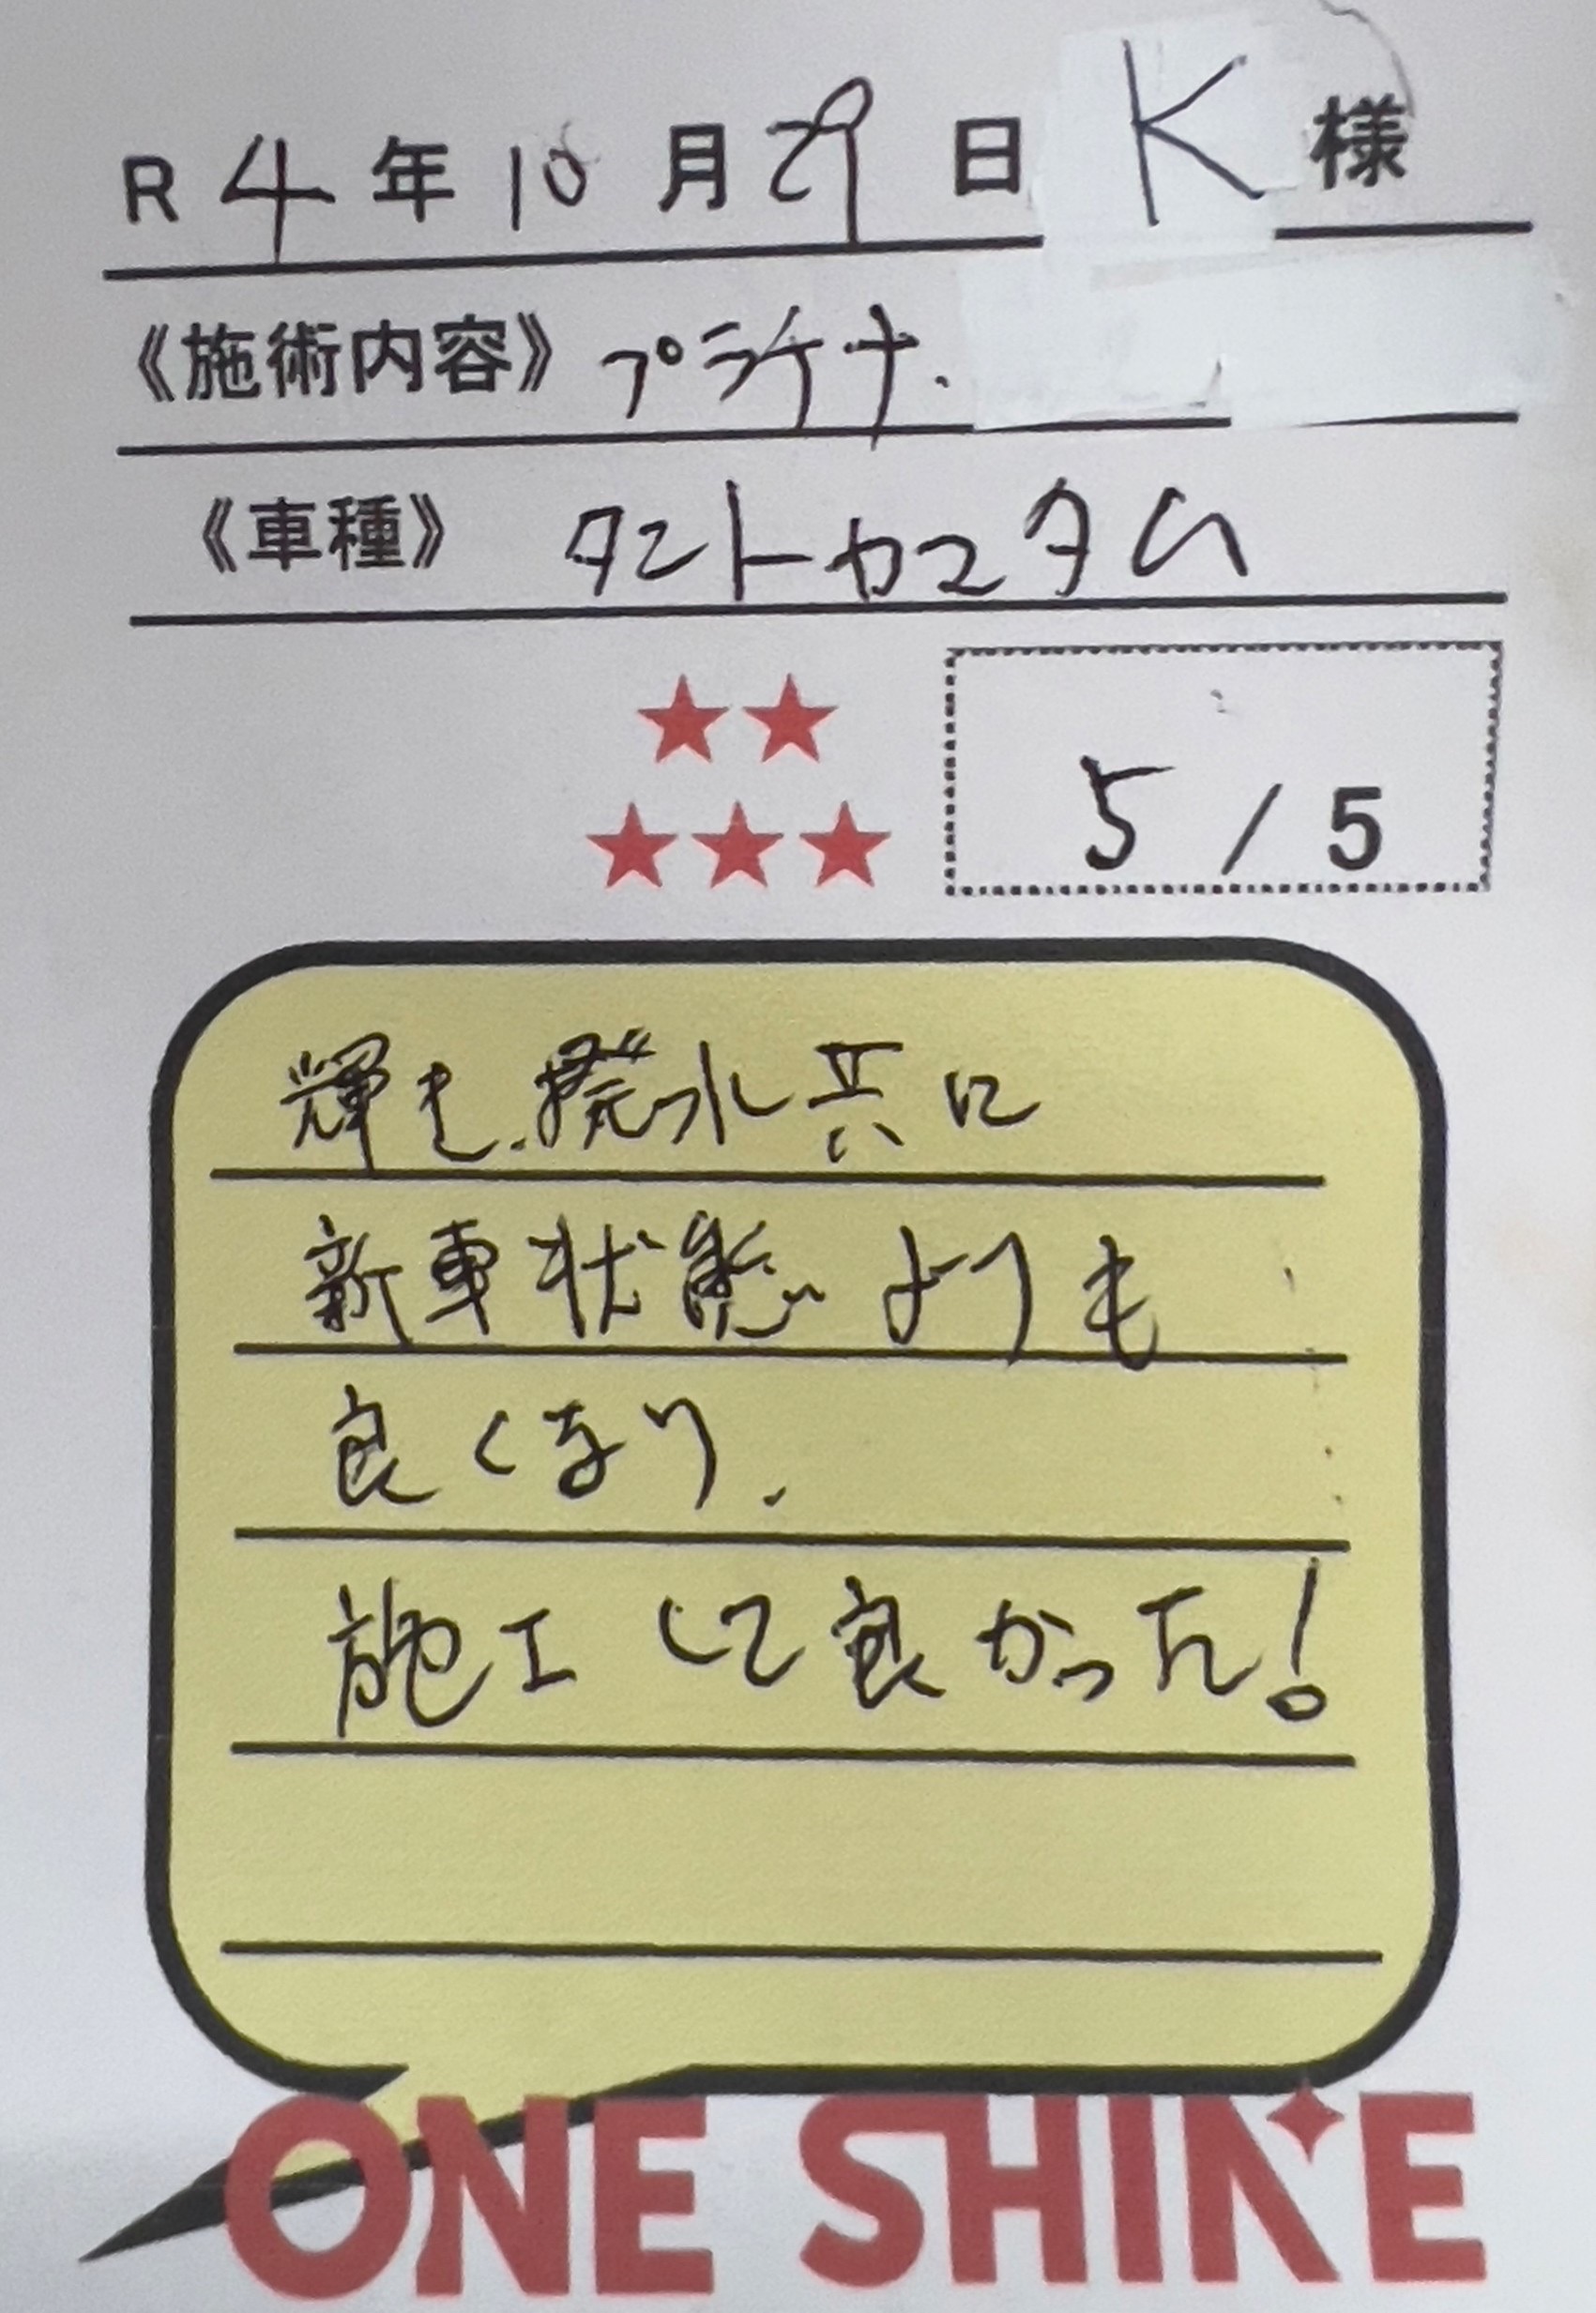 R4年10月29日 K様
《施術内容》プラチナ.
《車種》タントカスタム
5/5
輝も、撥水共に
新車状態よりも
良くなり、
施工して良かった!
ONE SHINE